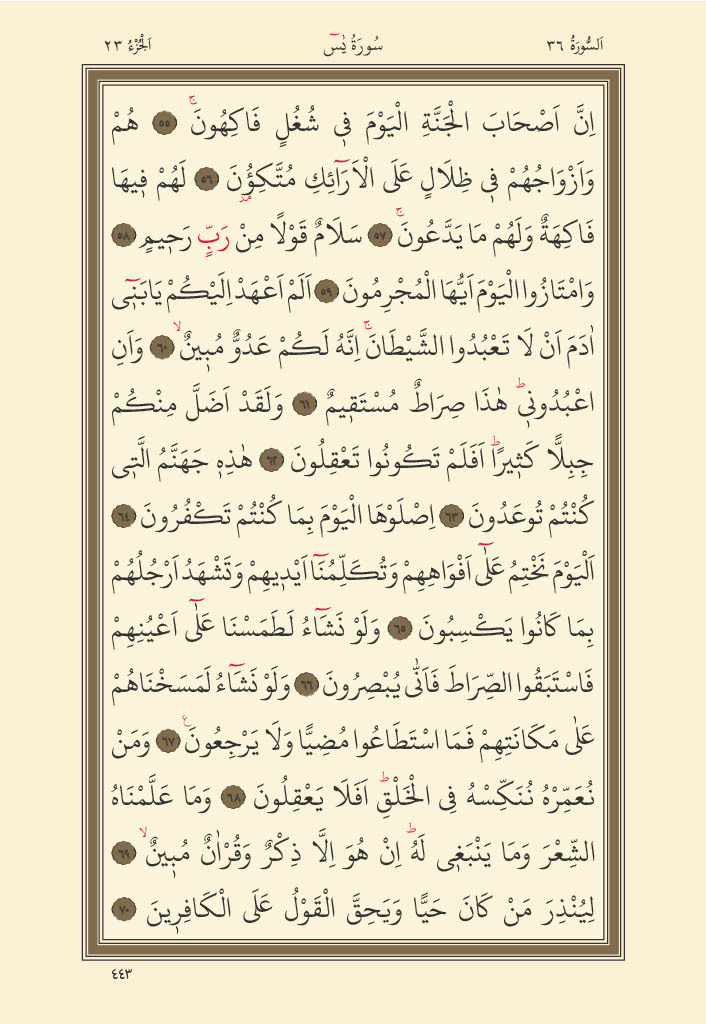 اَلسُّورَةُ ٣٦ سُورَةُ يٰسٓ اَلْجُزْءُ ٢٣
اِنَّ اَصْحَابَ الْجَنَّةِ الْيَوْمَ ف۪ي شُغُلٍ فَاكِهُونَۚ ﴿٥٥﴾ هُمْ
وَاَزْوَاجُهُمْ ف۪ي ظِلَالٍ عَلَى الْاَرَٓائِكِ مُتَّكِؤُ۫نَ ﴿٥٦﴾ لَهُمْ ف۪يهَا
فَاكِهَةٌ وَلَهُمْ مَا يَدَّعُونَۚ ﴿٥٧﴾ سَلَامٌ قَوْلًا مِنْ رَبٍّ رَح۪يمٍ ﴿٥٨﴾
وَامْتَازُوا الْيَوْمَ اَيُّهَا الْمُجْرِمُونَ ﴿٥٩﴾ اَلَمْ اَعْهَدْ اِلَيْكُمْ يَابَن۪ٓي
اٰدَمَ اَنْ لَا تَعْبُدُوا الشَّيْطَانَۚ اِنَّهُ لَكُمْ عَدُوٌّ مُب۪ينٌۙ ﴿٦٠﴾ وَاَنِ
اعْبُدُون۪يۜ هٰذَا صِرَاطٌ مُسْتَق۪يمٌ ﴿٦١﴾ وَلَقَدْ اَضَلَّ مِنْكُمْ
جِبِلًّا كَث۪يرًاۜ اَفَلَمْ تَكُونُوا تَعْقِلُونَ ﴿٦٢﴾ هٰذِه۪ جَهَنَّمُ الَّت۪ي
كُنْتُمْ تُوعَدُونَ ﴿٦٣﴾ اِصْلَوْهَا الْيَوْمَ بِمَا كُنْتُمْ تَكْفُرُونَ ﴿٦٤﴾
اَلْيَوْمَ نَخْتِمُ عَلٰٓى اَفْوَاهِهِمْ وَتُكَلِّمُنَٓا اَيْد۪يهِمْ وَتَشْهَدُ اَرْجُلُهُمْ
بِمَا كَانُوا يَكْسِبُونَ ﴿٦٥﴾ وَلَوْ نَشَٓاءُ لَطَمَسْنَا عَلٰٓى اَعْيُنِهِمْ
فَاسْتَبَقُوا الصِّرَاطَ فَاَنّٰى يُبْصِرُونَ ﴿٦٦﴾ وَلَوْ نَشَٓاءُ لَمَسَخْنَاهُمْ
عَلٰى مَكَانَتِهِمْ فَمَا اسْتَطَاعُوا مُضِيًّا وَلَا يَرْجِعُونَ۟ ﴿٦٧﴾ وَمَنْ
نُعَمِّرْهُ نُنَكِّسْهُ فِي الْخَلْقِۜ اَفَلَا يَعْقِلُونَ ﴿٦٨﴾ وَمَا عَلَّمْنَاهُ
الشِّعْرَ وَمَا يَنْبَغ۪ي لَهُۜ اِنْ هُوَ اِلَّا ذِكْرٌ وَقُرْاٰنٌ مُب۪ينٌۙ ﴿٦٩﴾
لِيُنْذِرَ مَنْ كَانَ حَيًّا وَيَحِقَّ الْقَوْلُ عَلَى الْكَافِر۪ينَ ﴿٧٠﴾
٤٤٣